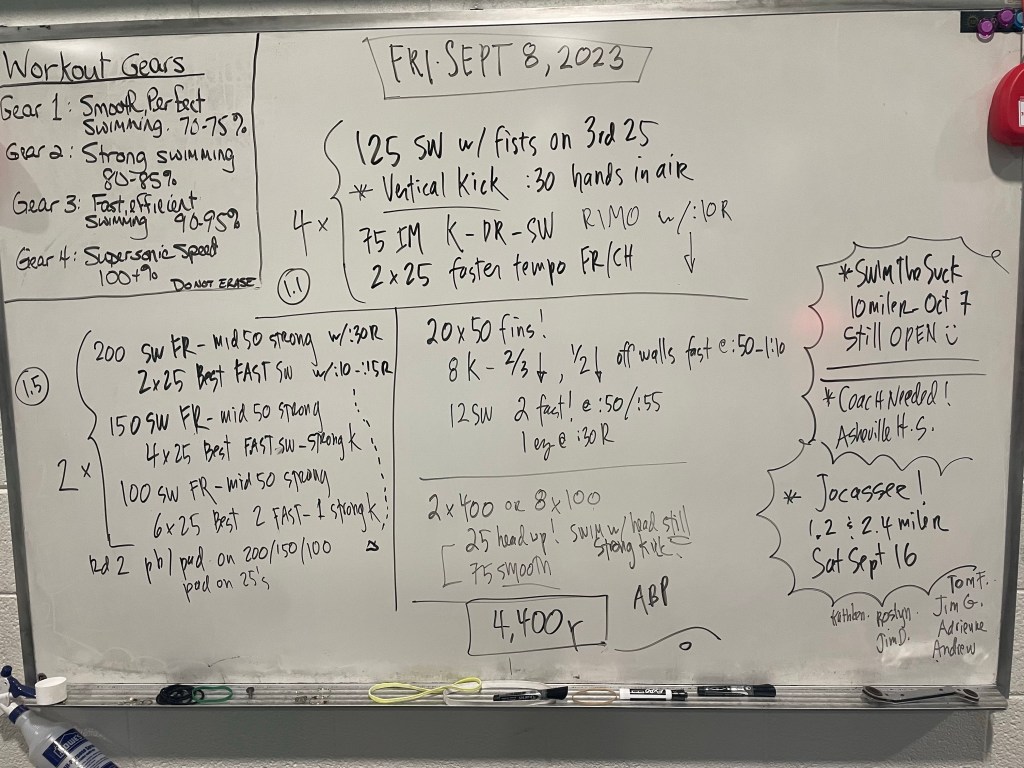 Workout Gears
Gear 1: Smooth, Perfect
Swimming. 70-75%
Gear 2: Strong swimming
80-85%
Gear 3: Fast, efficient
Swimming 90-95%
Gear 4: Supersonic Speed
100+%
DO NOT ERASE
FRI. SEPT 8, 2023
4 x
125 SW w/ fists on 3rd 25
* Vertical Kick :30 hands in air
75 IM K-DR-SW RIMO w/:10R
2 x 25 faster tempo FR/CH
1.1
1.5
2 x
200 SW FR - mid 50 strong w/:30R
2x25 Best FAST SW w/:10-:15R
150 SW FR - mid 50 strong
4x25 Best FAST SW - strong K
100 SW FR - mid 50 strong
6x25 Best 2 FAST - 1 strong K
Rd 2 pb/pad on 200/150/100
pad on 25's
20 x 50 fins!
8 K - 2/3 ↓, 1/2 ↓ off walls fast @ :50-1:10
12 SW 2 fast! @ :50/:55
1 ez @ :30R
2 x 400 or 8 x 100
25 head up! Swim w/ head still
Strong Kick!
75 smooth
4,400y
ABP
* Swim The Suck
10 miler Oct 7
Still OPEN
* Coach Needed!
Asheville H.S.
* Jocassee!
1.2 & 2.4 miler
Sat Sept 16
Kathleen. Roslyn. Tom F.
Jim D. Jim G.
Adrienne
Andrew
EXPO